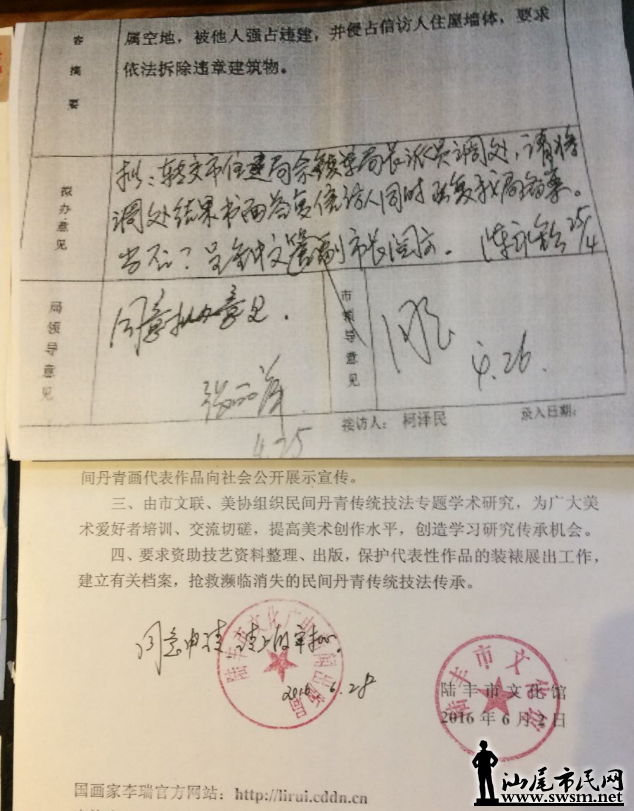 容摘要
属空地，被他人强占违建，并侵占信访人住屋墙体，要求
依法拆除违章建筑物。
拟办意见
拟：转交市住建局余 局长派员调处，请将
调处结果书面答复信访人同时函复我局备案。
当否？呈 副市长阅示。
25/4
局领导意见
同意拟办意见.
4.25
市领导意见
同意
4.26.
接访人： 柯泽民
录入日期：
间丹青画代表作品向社会公开展示宣传。
三、由市文联、美协组织民间丹青传统技法专题学术研究，为广大美
术爱好者培训、交流切磋，提高美术创作水平，创造学习研究传承机会。
四、要求资助技艺资料整理、出版，保护代表性作品的装裱展出工作，
建立有关档案，抢救濒临消失的民间丹青传统技法传承。
同意申请 请上级审批。
2016.6.28
陆丰市文化广
陆丰市文化馆
陆丰市文化馆
2016年6月2日
国画家李瑞官方网站：http://lirui.cddn.cn
汕尾市民网
www.swsm.net